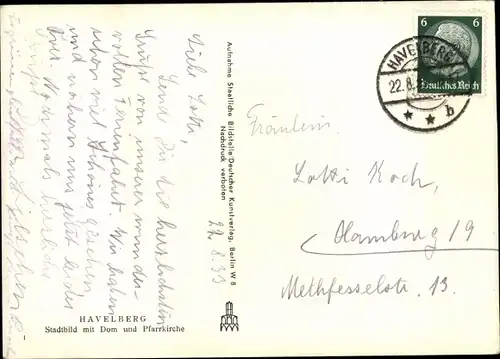 Liebe Lotti,
Sende Dir die herzlichsten
Grüße von unserer wunder-
vollen Ferienfahrt. Wir haben
schon viel Schönes gesehen
und nehmen uns jetzt wieder
herzliche
22.8.39
Aufnahme Staatliche Bildstelle/Deutscher Kunstverlag, Berlin W 8
Nachdruck verboten
HAVELBERG
Stadtbild mit Dom und Pfarrkirche
1
6 6
Deutsches Reich
HAVELBERG
22.8.
b
Fräulein
Lotti Koch,
Hamburg 19
Methfesselstr. 13.